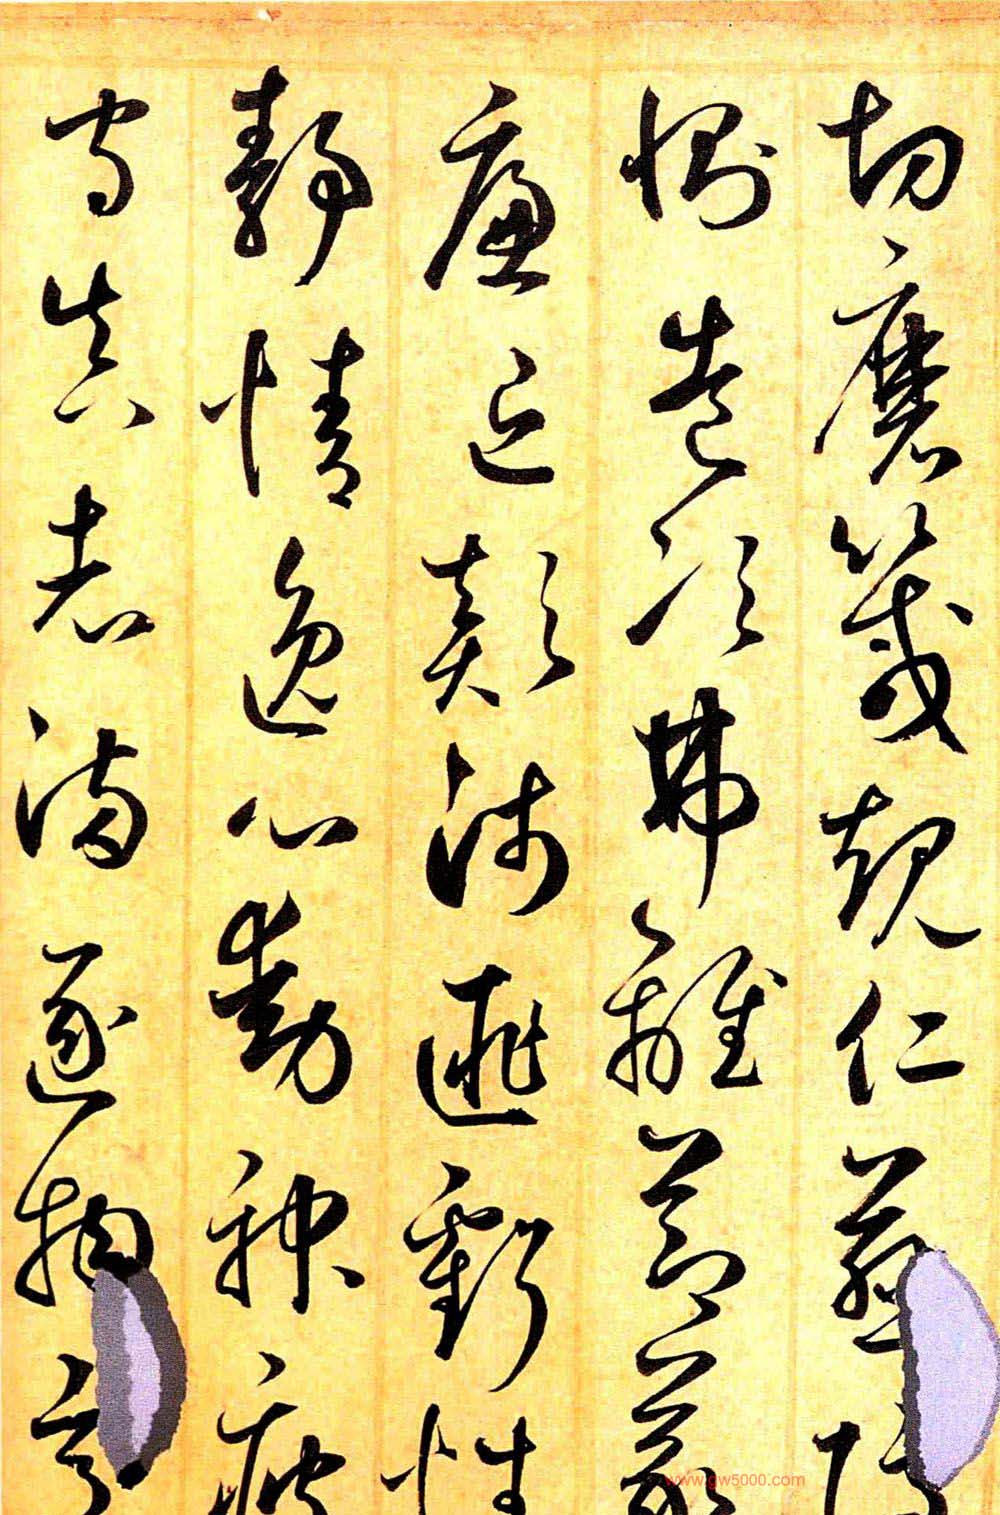 切磨箴規仁慈隱
惻造次弗離節義
廉退顛沛匪虧性
靜情逸心動神疲
守真志滿逐物意
www.gw5000.com